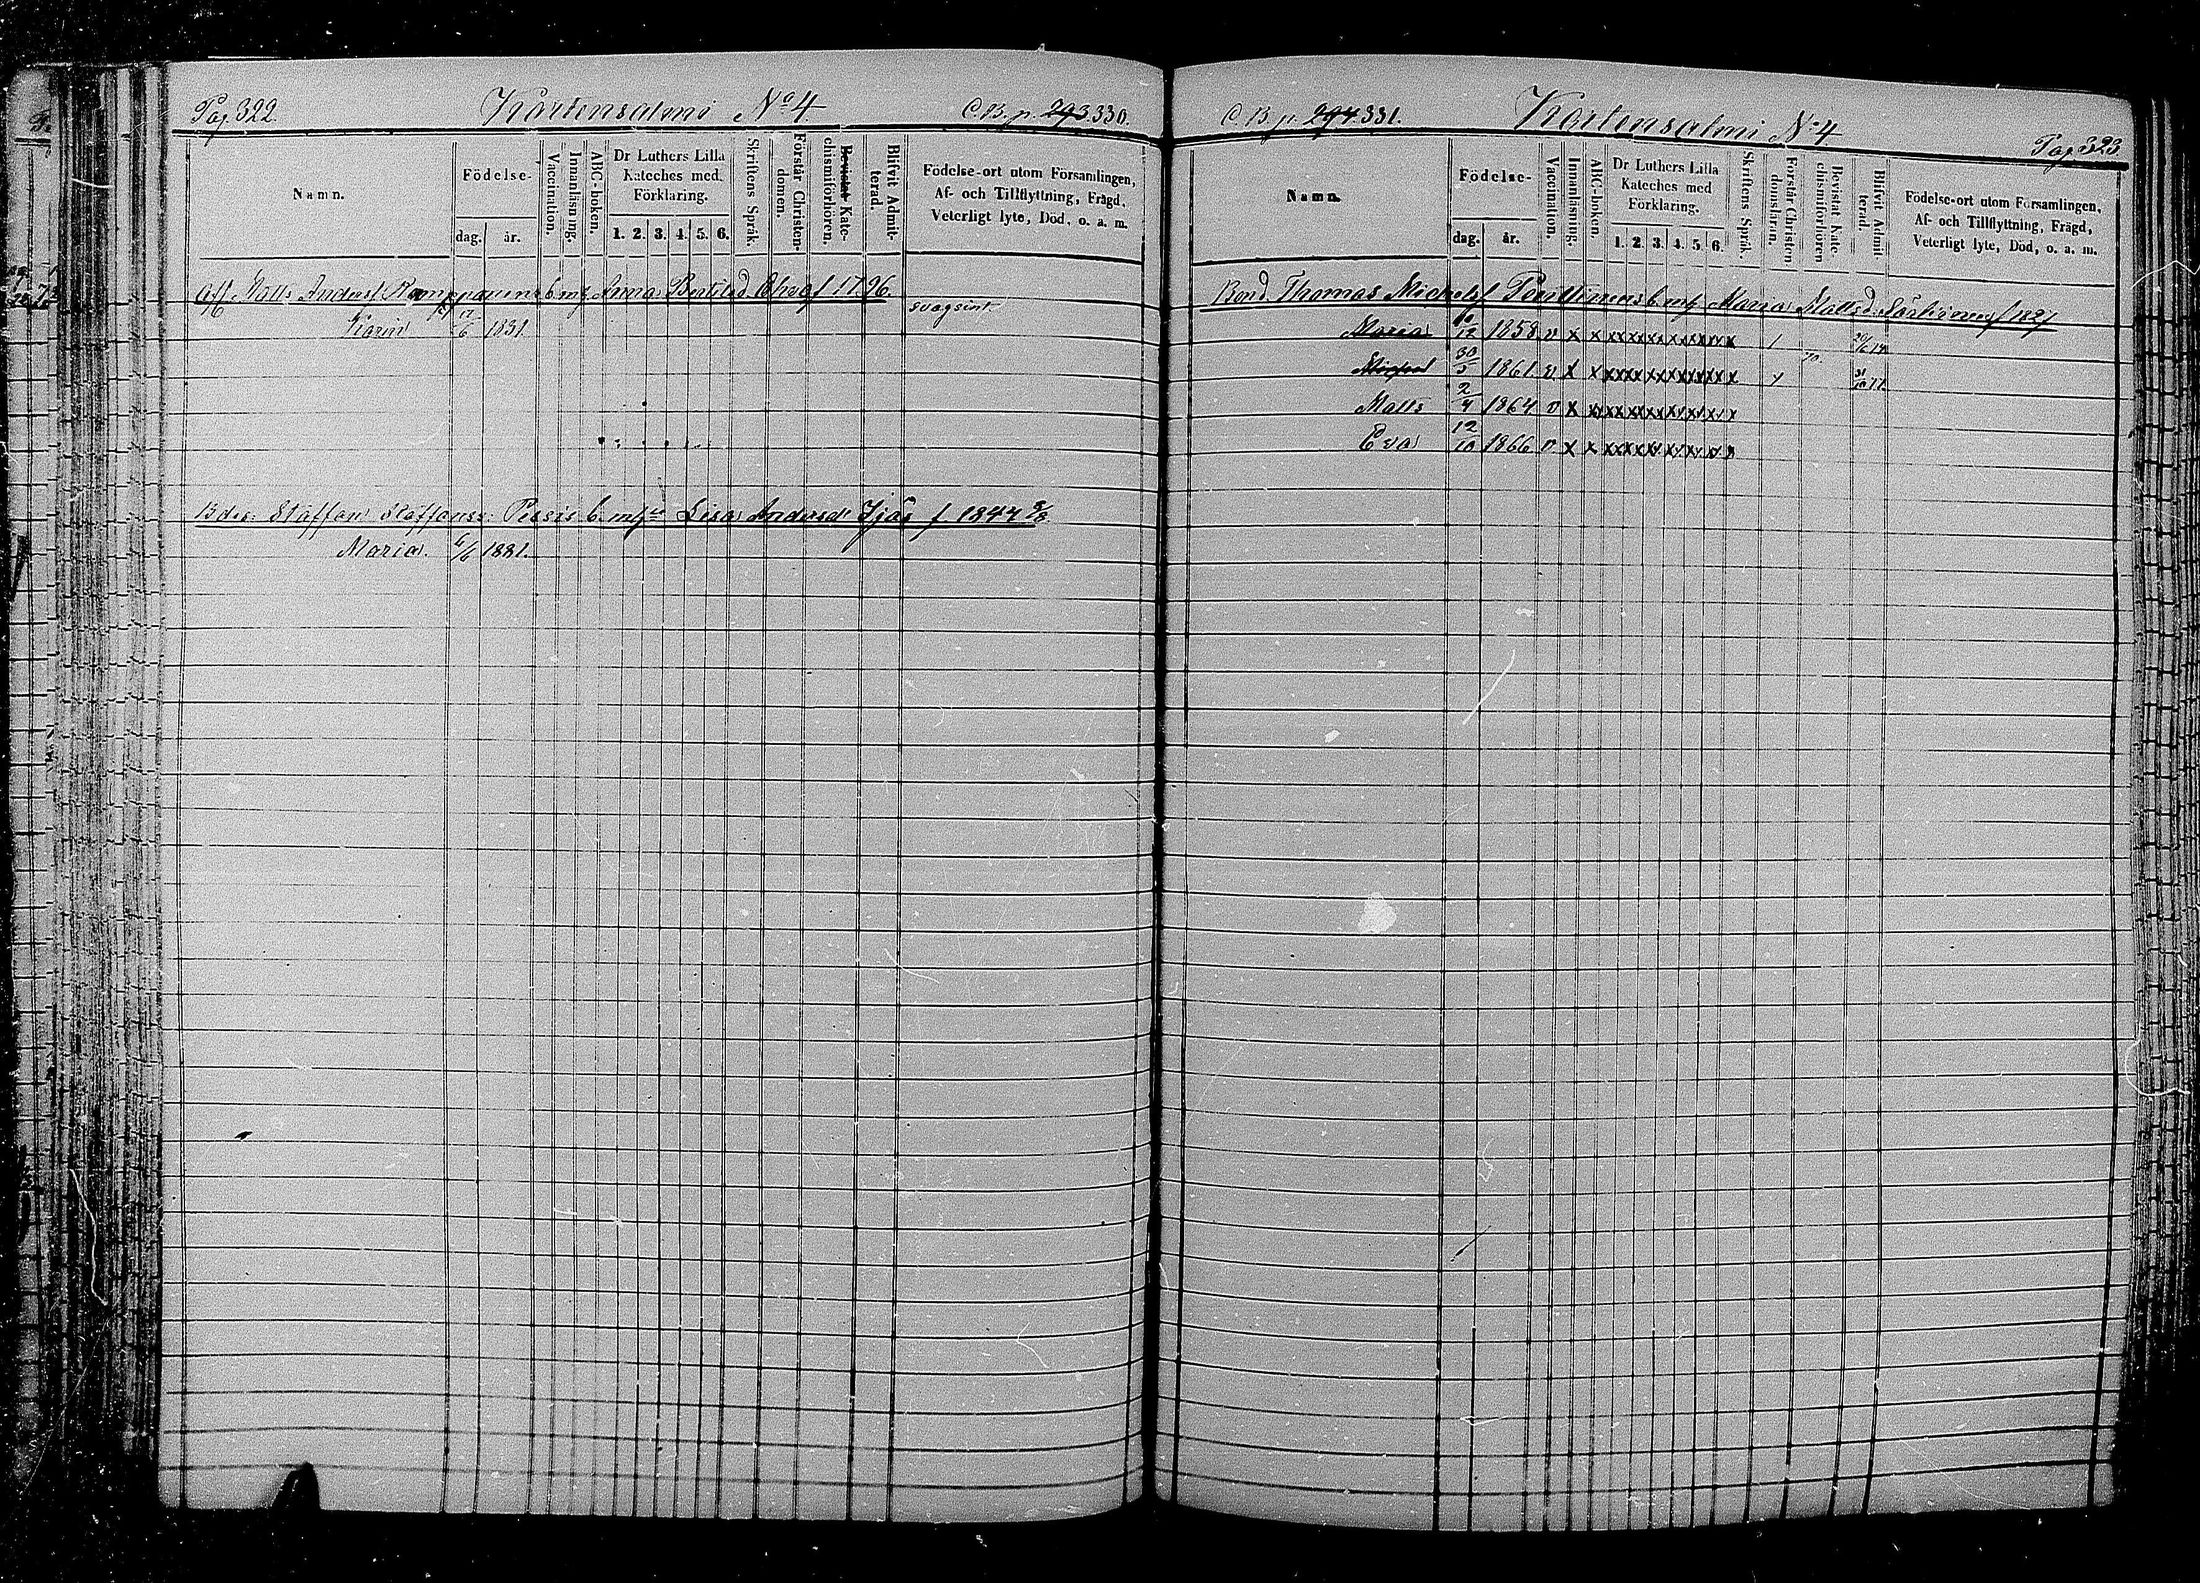 Pag. 322. Kortensalmi No 4 C. B. p. 293. 330.
Namn. Födelse- dag. år. Vaccination. Innanläsning. ABC-boken. Dr Luthers Lilla Kateches med. Förklaring. 1. 2. 3. 4. 5. 6. Skriftens Språk. Förstår Christendomen. Bevistat Katechismiförhören. Blifvit Admitterad. Födelse-ort utom Församlingen, Af- och Tillflyttning, Frägd, Veterligt lyte, Död, o. a. m.
Matts Anders. b. mf Anna Bertilsd. f 1796
Karin 17/6 1831 svagsint
Staffan Staffanss. Pessi b. mf Lisa Andersd. f. 1844
Maria. 6/6 1881.
C. B. p. 294. 331. Kortensalmi No 4 Pag. 323
Namn. Födelse- dag. år. Vaccination. Innanläsning. ABC-boken. Dr Luthers Lilla Kateches med Förklaring. 1. 2. 3. 4. 5. 6. Skriftens Språk. Förstår Christendomsläran. Bevistat Katechismiförhören Blifvit Admitterad. Födelse-ort utom Församlingen, Af- och Tillflyttning, Frägd, Veterligt lyte, Död, o. a. m.
Bond. Thomas Michelsf b. mf Maria Mattsd. f 1821
Maria 10/12 1858 v x x xxxxxxxxxxxx
30/5 1861 v x x xxxxxxxxxxxx
Matts 2/4 1864 v x x xxxxxxxxxxxx
Eva 12/10 1866 v x x xxxxxxxxxxxx